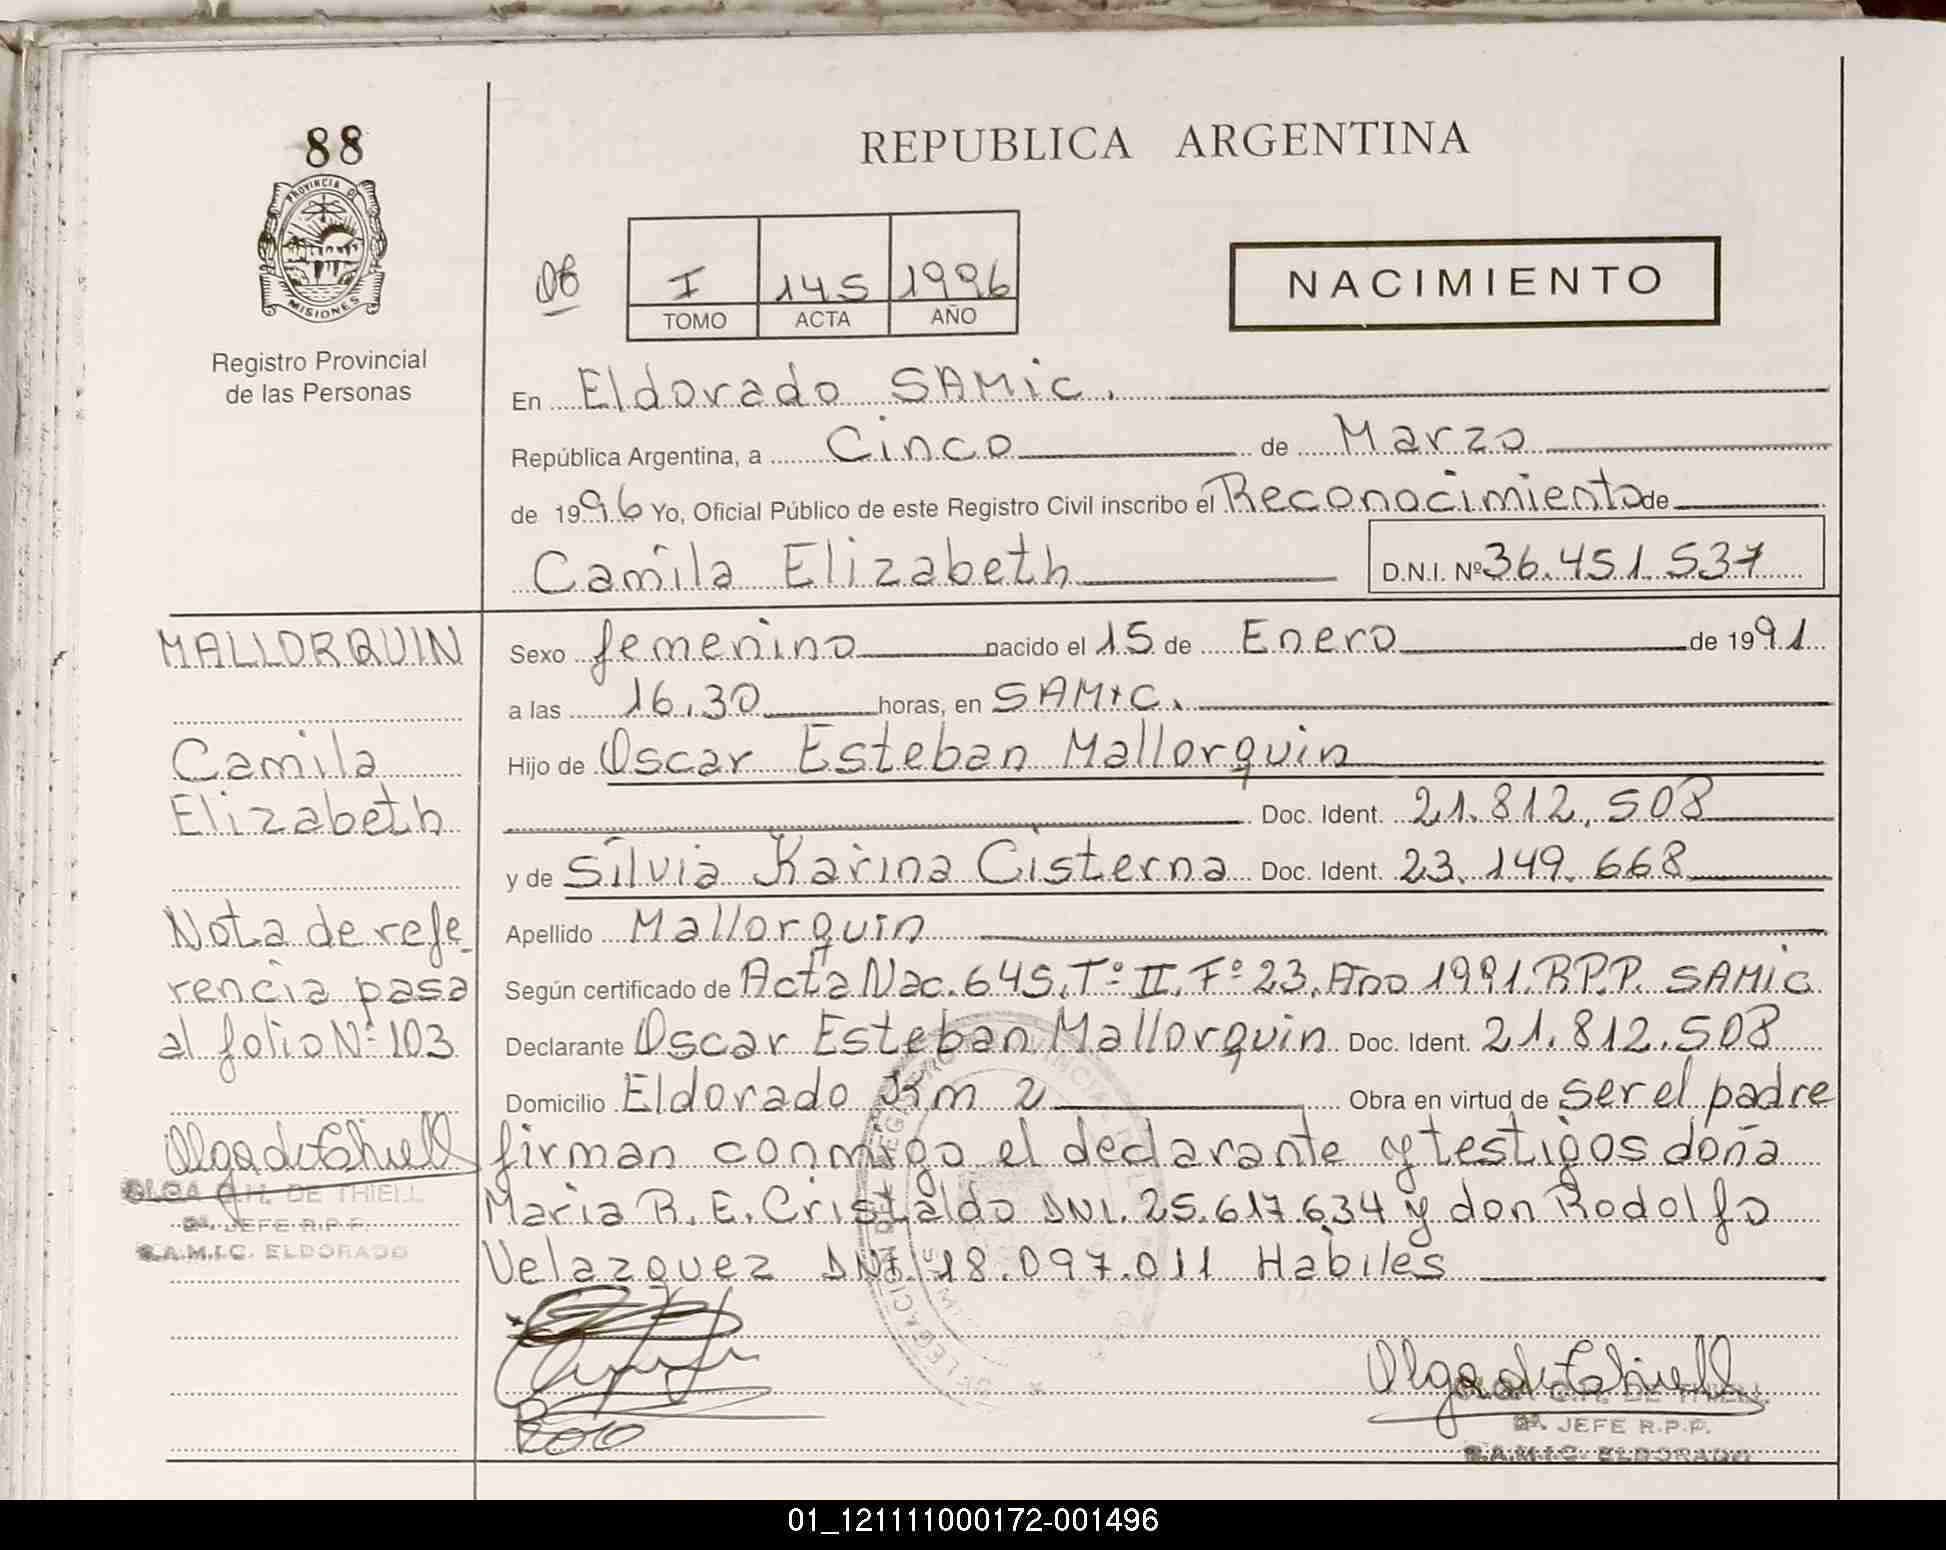 88
PROVINCIA DE
MISIONES
Registro Provincial
de las Personas
REPUBLICA ARGENTINA
I 145 1996
TOMO ACTA AÑO
NACIMIENTO
En Eldorado SAMic.
República Argentina, a Cinco de Marzo
de 1996 Yo, Oficial Público de este Registro Civil inscribo el Reconocimiento de
Camila Elizabeth D.N.I. Nº 36.451.537
MALLORQUIN
Sexo femenino nacido el 15 de Enero de 1991
a las 16.30 horas, en SAMIC.
Camila
Elizabeth
Hijo de Oscar Esteban Mallorquin
Doc. Ident. 21.812.508
y de Silvia Karina Cisterna Doc. Ident. 23.149.668
Nota de refe-
rencia pasa
al folio Nº 103
Apellido Mallorquin
Según certificado de Acta Nac. 645, Tº II, Fº 23, Año 1991. R.P.P. SAMIC
Declarante Oscar Esteban Mallorquin Doc. Ident. 21.812.508
Domicilio Eldorado Km 2 Obra en virtud de ser el padre
firman conmigo el declarante y testigos doña
Maria R. E. Cristaldo DNI. 25.617.634 y don Rodolfo
Velazquez DNI. 18.097.011 Habiles
Olga de Thiell
OLGA G.H. DE THIELL
2ª. JEFE R.P.P.
S.A.M.I.C. ELDORADO
Olga de Thiell
OLGA G.H. DE THIELL
2ª. JEFE R.P.P.
S.A.M.I.C. ELDORADO
01_121111000172-001496